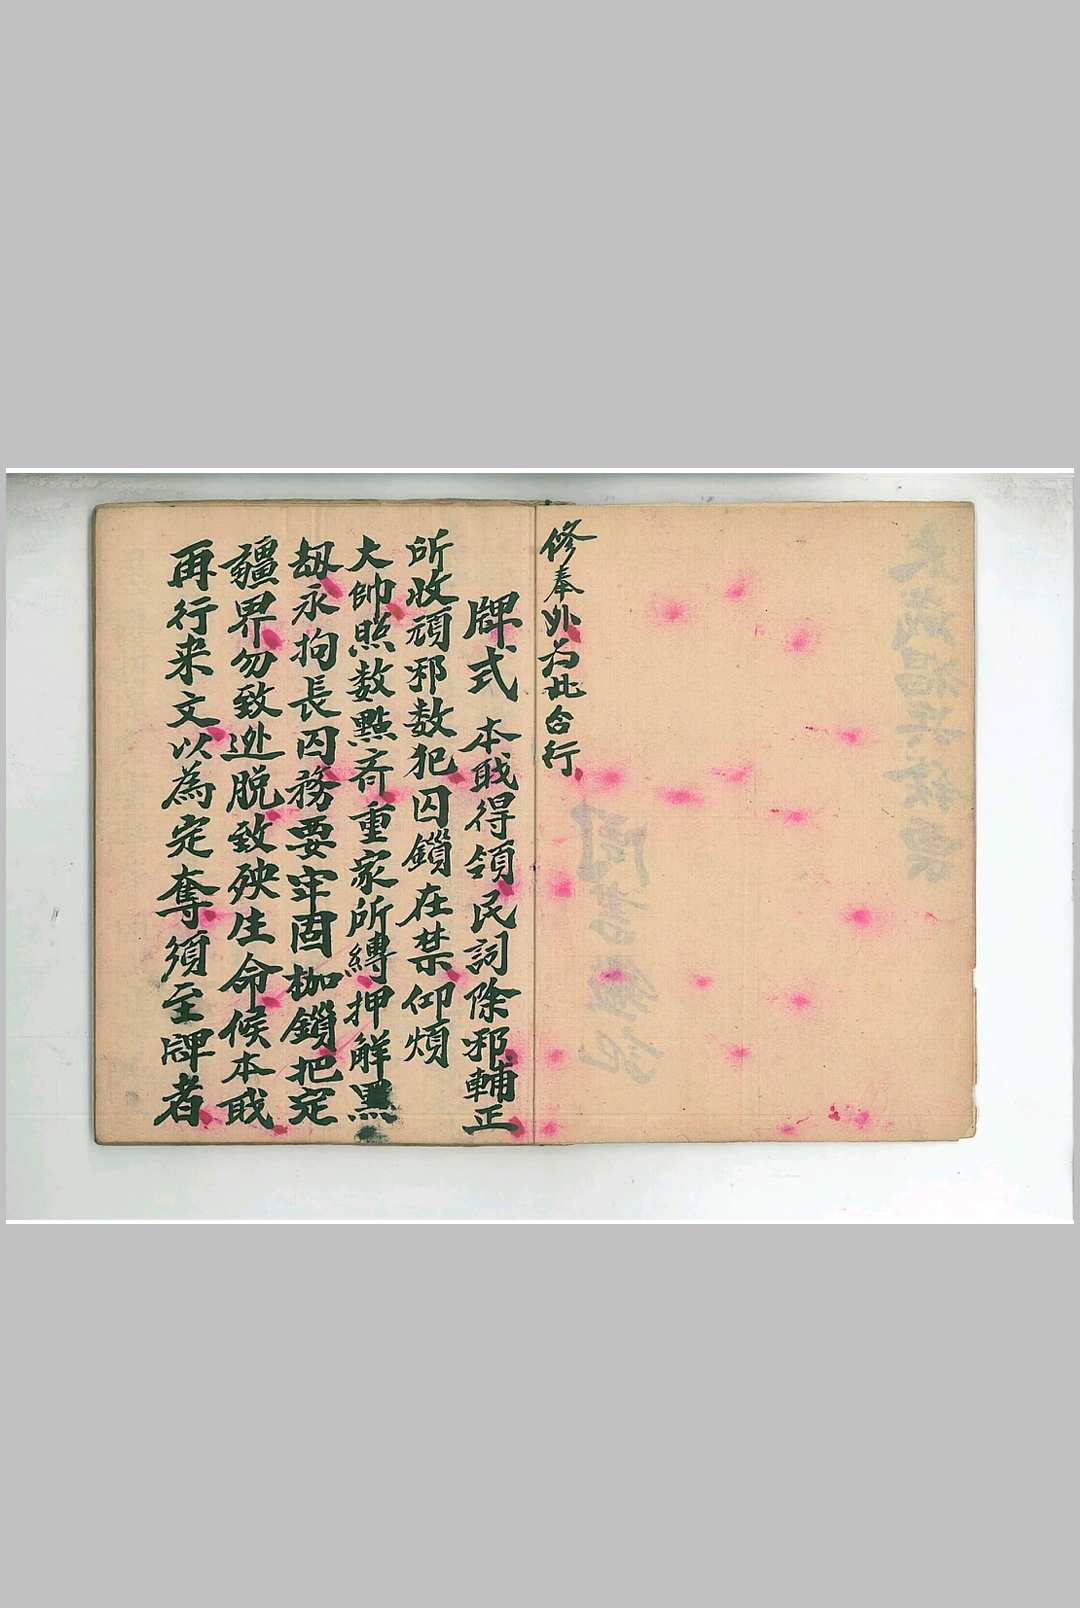 修奉外为此合行
牌式 本戝得領民詞除邪輔正
所收頑邪数犯囚鎖在禁仰煩
大帥照数點斉重家所縳押觧黑
刼永拘長囚務要牢固枷鎖把定
疆界勿致迯脱致殃生命候本戝
再行来文以為定奪須至牌者